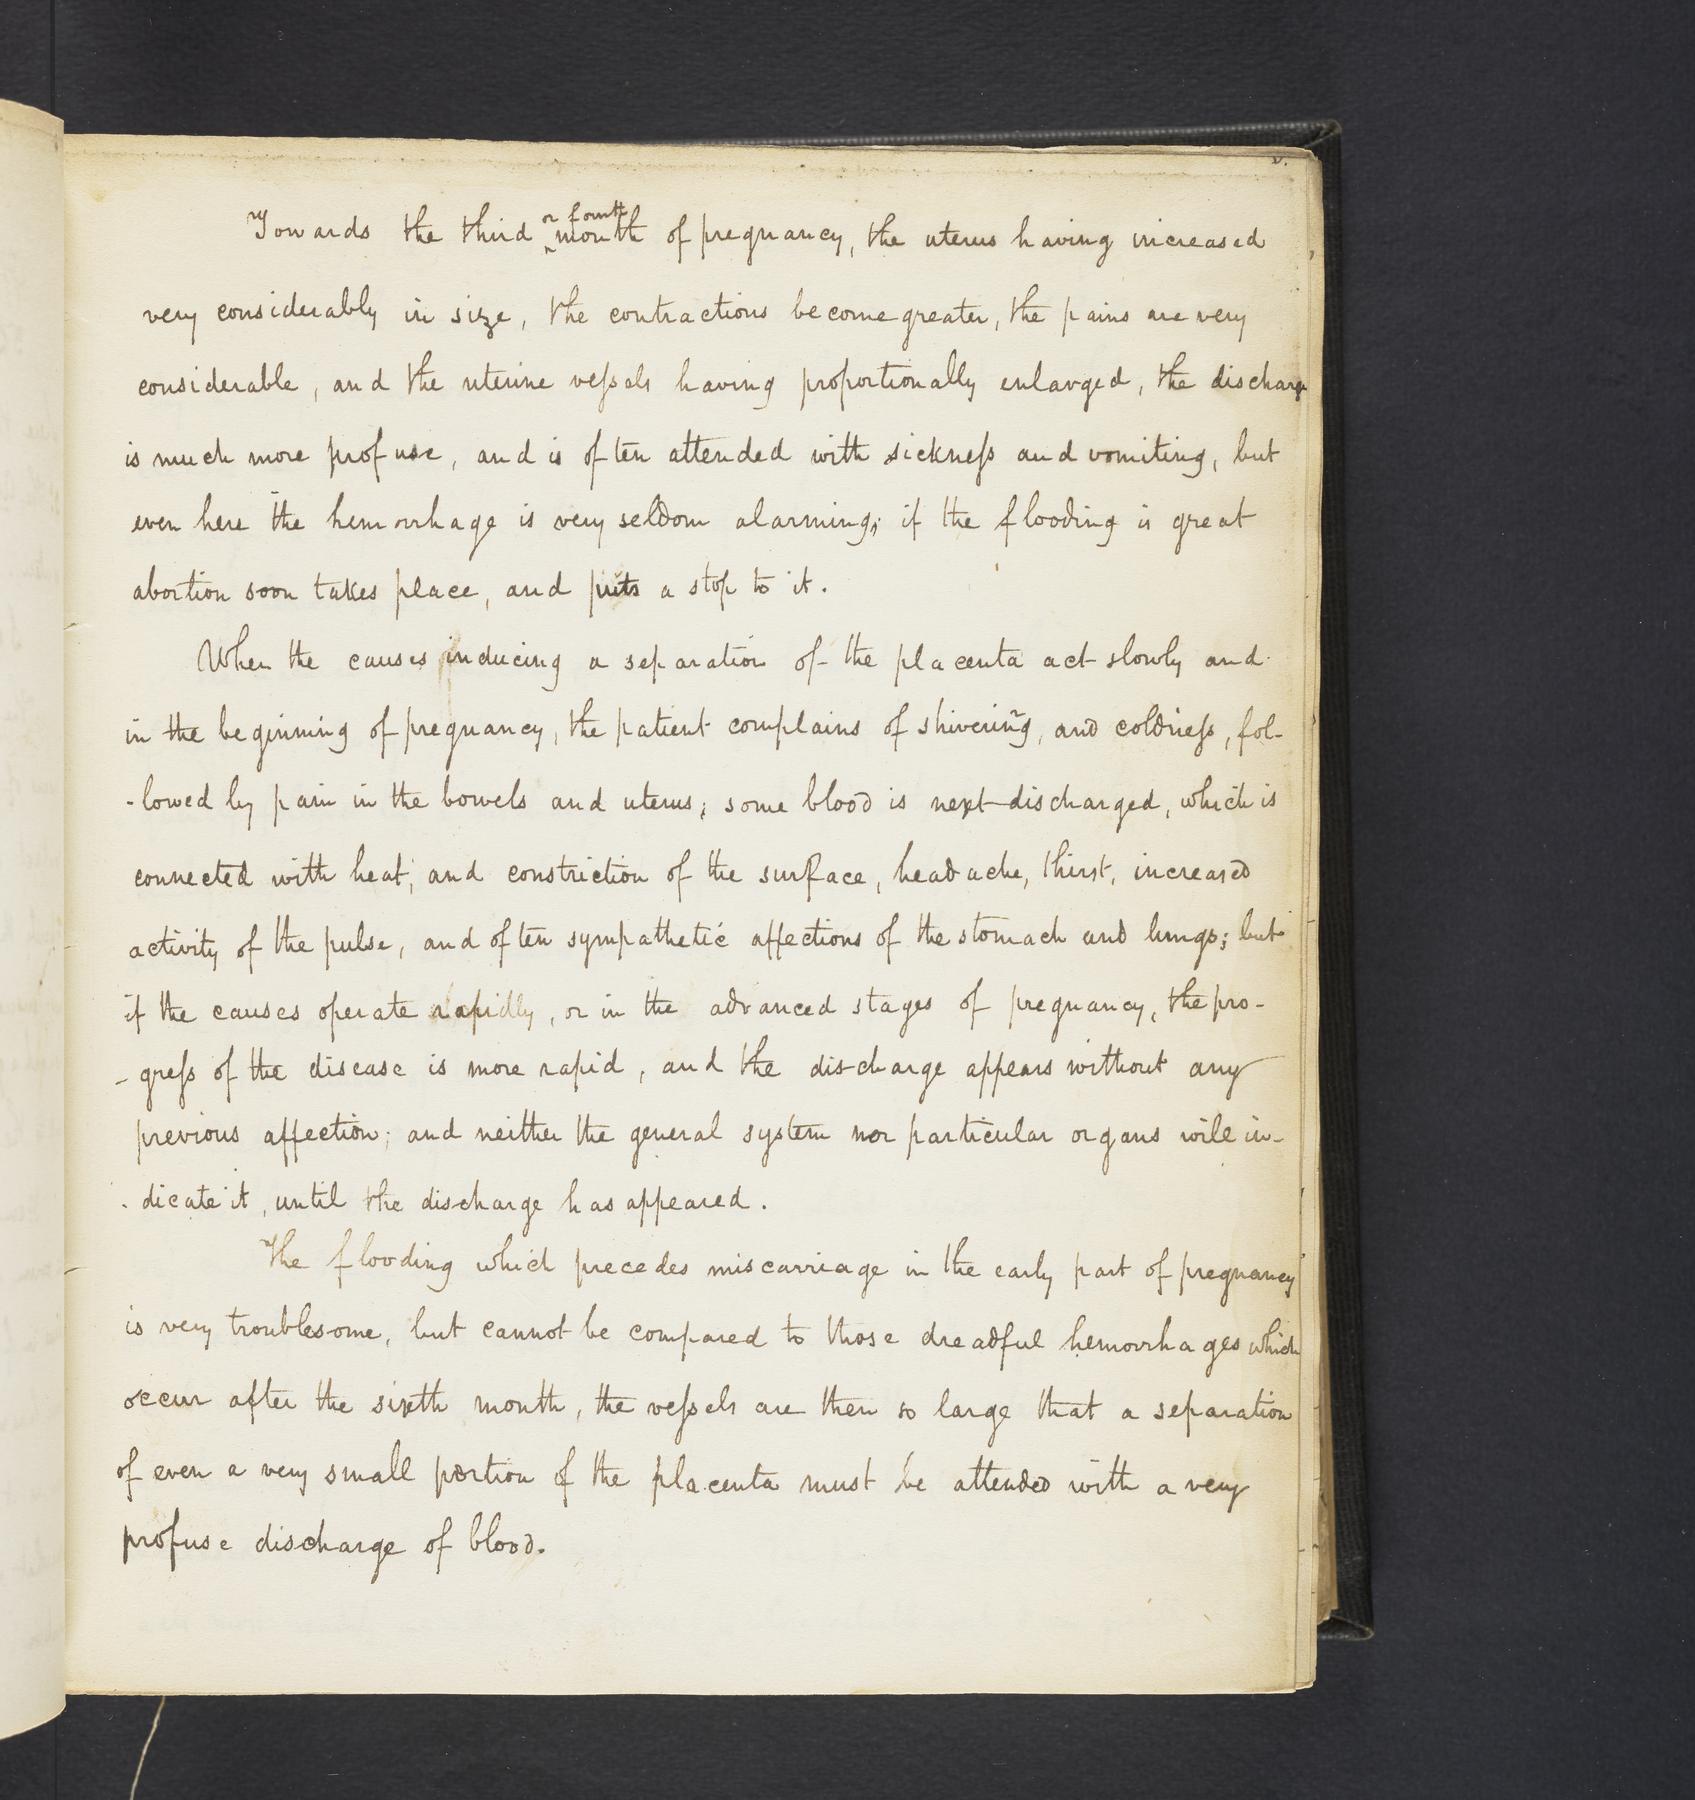 Towards the third ^or fourth month of pregnancy, the uterus having increased
very considerably in size, the contractions become greater, the pains are very
considerable, and the uterine veſsels having proportionally enlarged, the discharge
is much more profuse, and is often attended with sickneſs and vomiting, but
even here the hemorrhage is very seldom alarming; if the flooding is great
abortion soon takes place, and puts a stop to it.
When the causes inducing a separation of the placenta act slowly and
in the beginning of pregnancy, the patient complains of shivering, and coldneſs, fol-
-lowed by pain in the bowels and uterus; some blood is next discharged, which is
connected with heat, and constriction of the surface, headache, thirst, increased
activity of the pulse, and often sympathetic affections of the stomach and lungs; but
if the causes operate rapidly, or in the advanced stages of pregnancy, the pro-
-greſs of the disease is more rapid, and the discharge appears without any
previous affection; and neither the general system nor particular organs will in-
-dicate it, until the discharge has appeared.
The flooding which precedes miscarriage in the early part of pregnancy
is very troublesome, but cannot be compared to those dreadful hemorrhages which
occur after the sixth month, the veſsels are then so large that a separation
of even a very small portion of the placenta must be attended with a very
profuse discharge of blood.